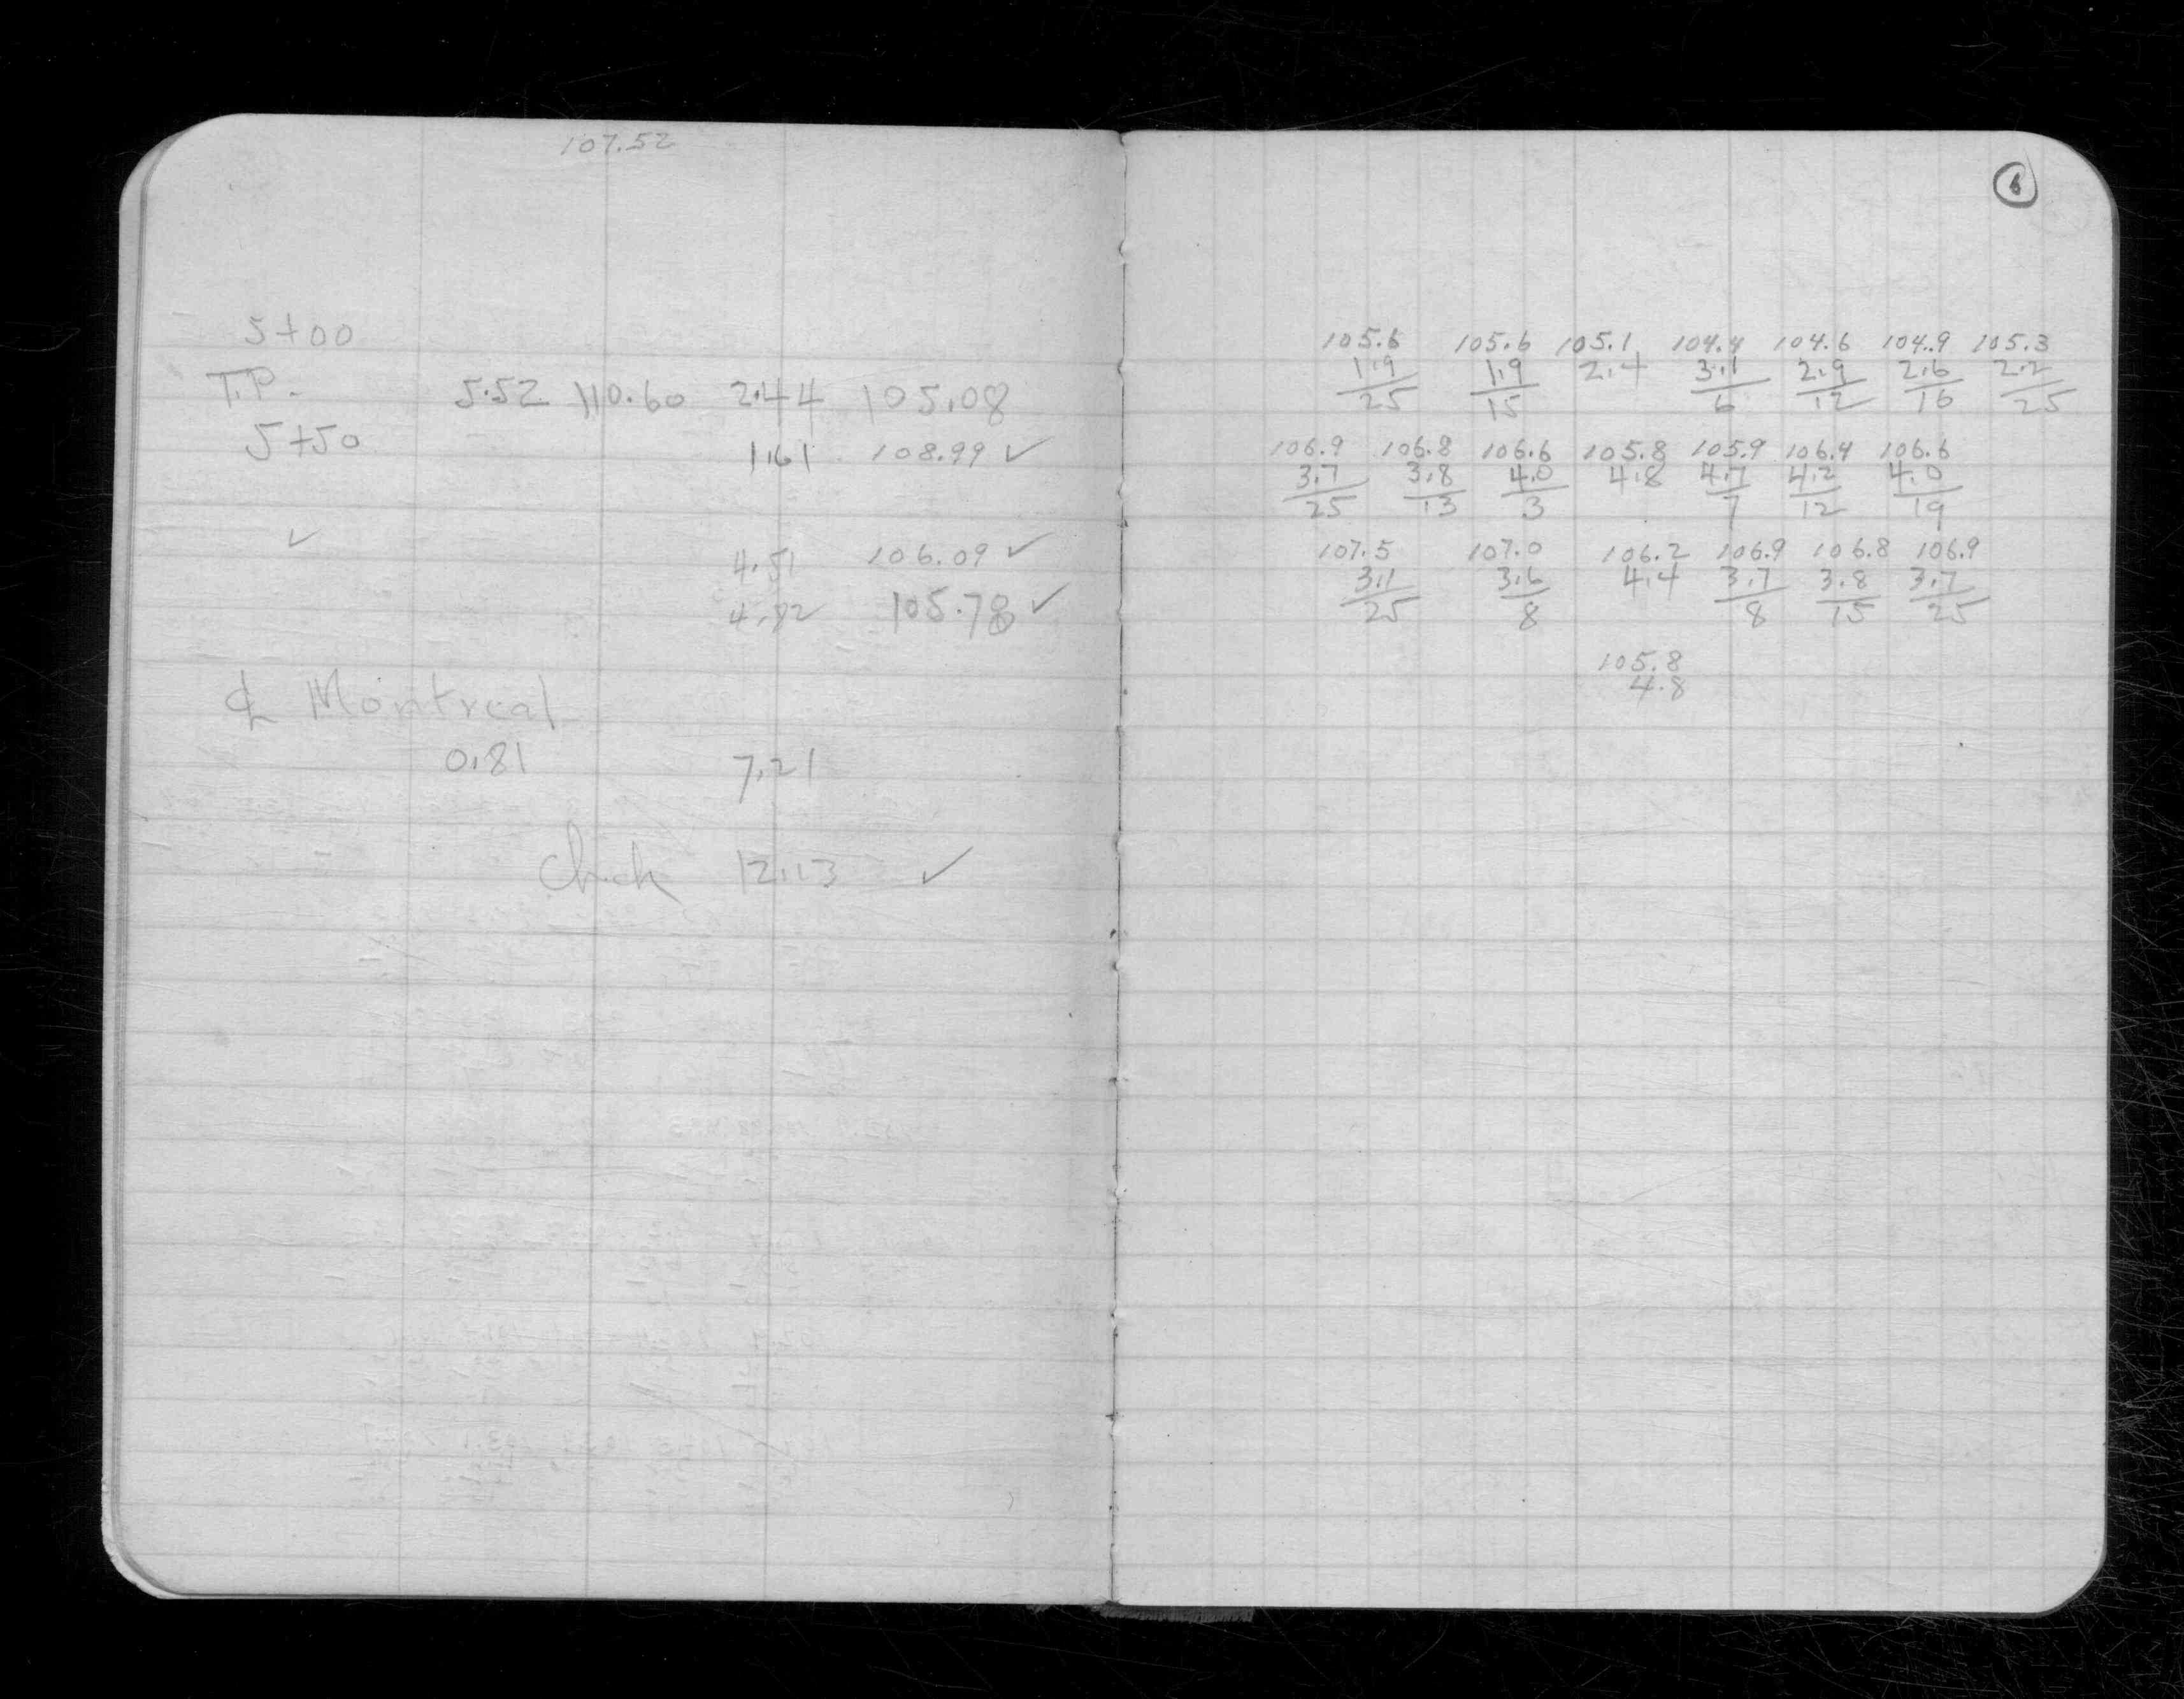 107.52
5+00
T.P. 5.52 110.60 2.44 105.08
5+50 1.61 108.99 ✓
✓ 4.51 106.09 ✓
4.82 105.78 ✓
℄ Montreal
0.81 7.21
Check 12.13 ✓
6
105.6 105.6 105.1 104.4 104.6 104.9 105.3
1.9 1.9 2.4 3.1 2.9 2.6 2.2
25 15 6 12 16 25
106.9 106.8 106.6 105.8 105.9 106.4 106.6
3.7 3.8 4.0 4.8 4.7 4.2 4.0
25 13 3 7 12 19
107.5 107.0 106.2 106.9 106.8 106.9
3.1 3.6 4.4 3.7 3.8 3.7
25 8 8 15 25
105.8
4.8